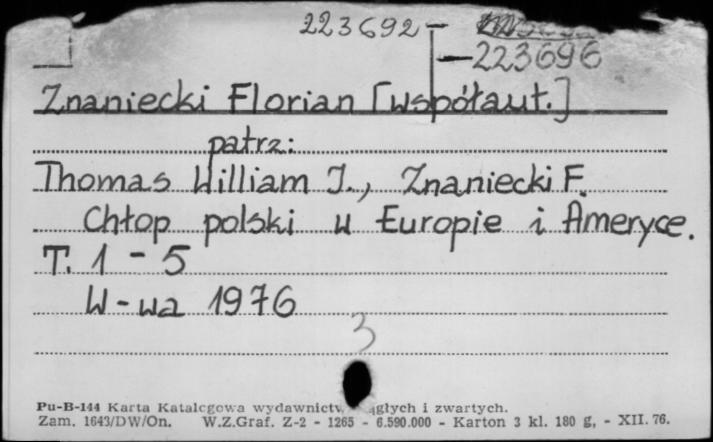 223692 -
- 223696
Znaniecki Florian [współaut.]
patrz:
Thomas William I., Znaniecki F.
Chłop polski w Europie i Ameryce.
T. 1 - 5
W-wa 1976
3
Pu-B-144 Karta Katalogowa wydawnictw ągłych i zwartych.
Zam. 1643/DW/On. W.Z.Graf. Z-2 - 1265 - 6.590.000 - Karton 3 kl. 180 g, - XII. 76.